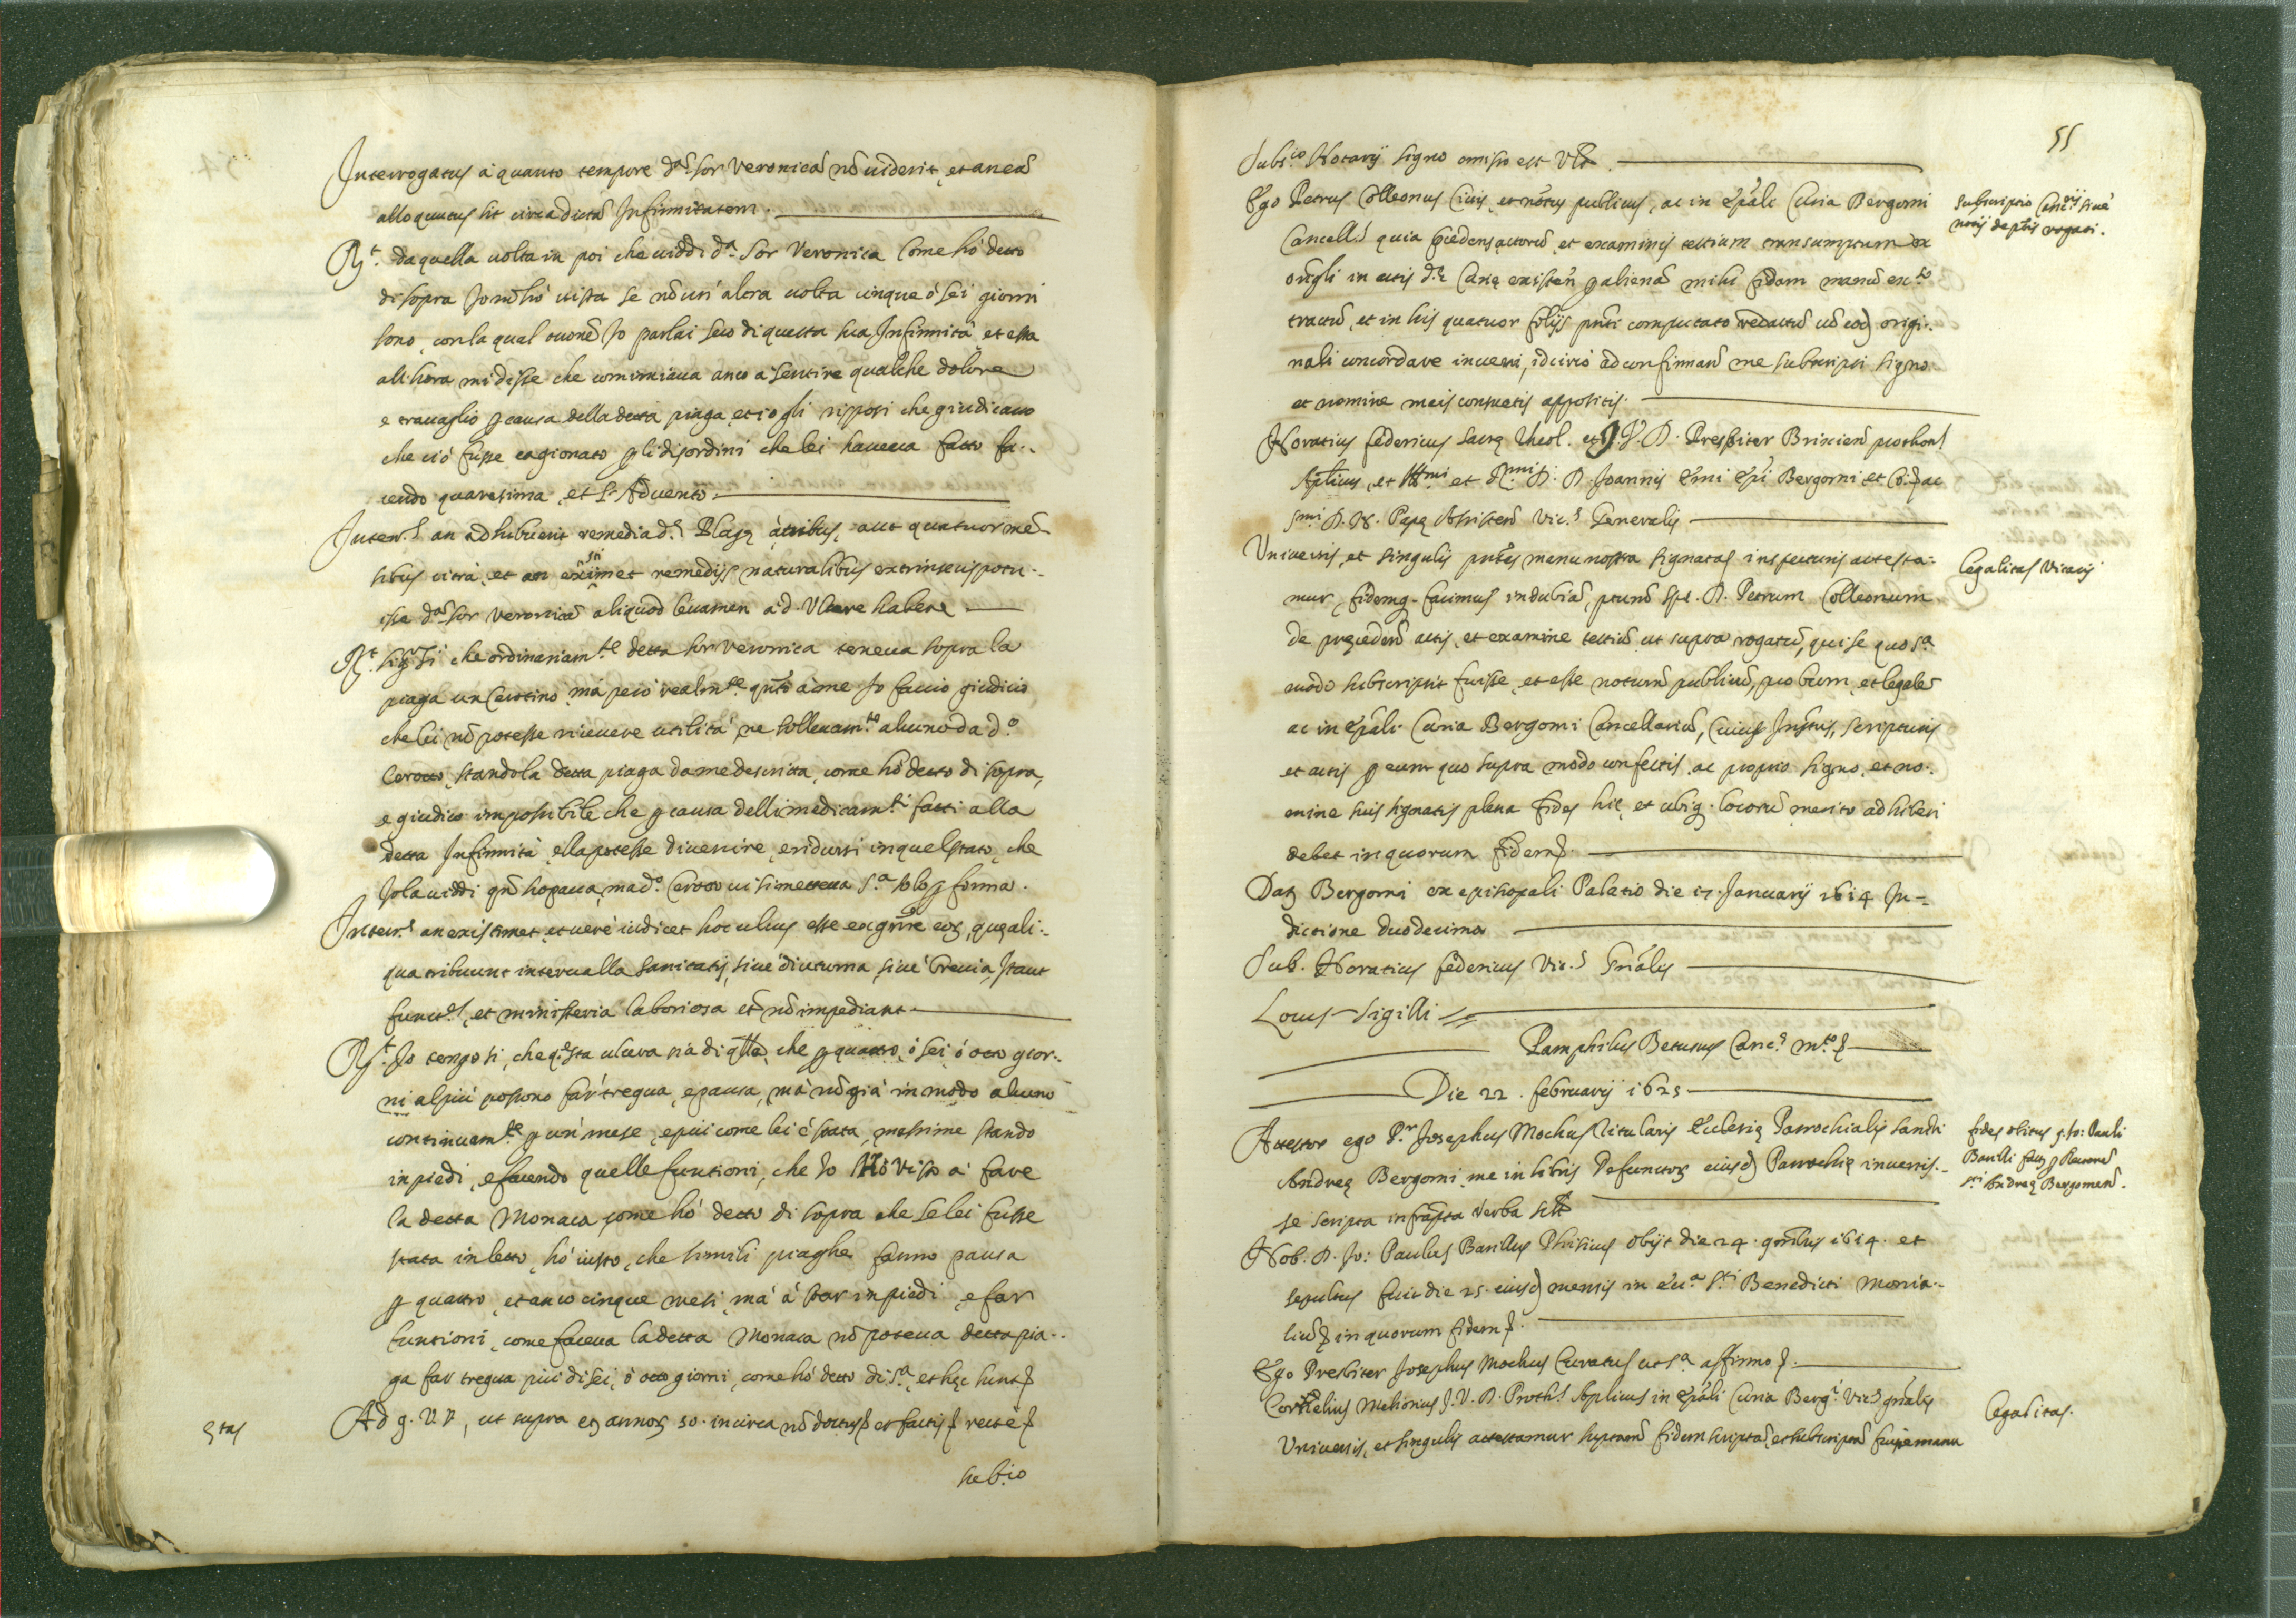 Interrogatus à quanto tempore d.ã sor Veronicã nõ uiderit, et an eã
alloquutus sit circa dictã Infirmitatem.
R.t da quella uolta in poi che uiddi d.a Sor Veronica Come hò detto
di sopra Io nõ l'hò uista se nõ un' altra uolta cinque ò sei giorni
sono, con la qual occone Io parlai seco di questa sua Infirmità, et essa
all'hora mi disse che cominciaua anco a sentire qualche dolore
e trauaglio p causa della detta piaga, et io gli risposi che giudicauo
che ciò fusse cagionato p li disordini che lei haueua fatto fa-
cendo quaresima, et l'Aduento.
Inter.s an adhibuerit remedia d.e Plagę à tribus, aut quatuor mẽ-
sibus citrà, et an eximet remedijs naturalibus extrinsecis potu-
isse d.ã sor Veronicã aliquod leuamen a d. Vlcere habere
R.t sig.r Sì che ordinariam.te detta sor Veronica teneua sopra la
piaga un Cerottino, mà però realm.te quãto à me Io faccio giudicio
che lei nõ potesse riceuere utilità, ne solleuam.to alcuno da d.o
Cerotto, standola detta piaga da me descritta, come hò detto di sopra,
e giudico impossibile che p causa delli medicam.ti fatti alla
detta Infirmità, ella potesse diuenire, e ridursi in quel stato, che
Io la uiddi qñ hopaua, ma d.o Cerotto ui si metteua s.a solo p forma.
Inter.s an existimet, et uerè iudicet hoc ulcus esse ex gñre eoȝ, quę ali-
qua tribuunt interualla sanitatis, siue diuturna, siue breuia, staut
funct.es, et ministeria laboriosa et nõ impediant
R.t Io tengo sì, che q.sta ulcera sia di q̃lle, che p quattro, ò sei ò otto gior-
ni al più possono far' tregua, e pausa, mà nõ già in modo alcuno
continuam.te p un' mese, e più come lei è stata, massime stando
in piedi, e facendo quelle funtioni, che Io Hò visto à fare
la detta Monaca, come hò detto di sopra che se lei fusse
stata in letto, hò uisto, che simili piaghe fanno pausa
p quattro, et anco cinque mesi, mà à star in piedi, e far
funtioni, come faceua la detta Monaca nõ poteua detta pia-
ga far tregua più di sei, ò otto giorni, come hò detto di s.a, et hęc sunt
Ad g. ut supra eȝ annoȝ 50. in circa nõ doctus et factis rectè
ętas
subs.io
55
Subs.io Notarij signo omisso est Vȝ
Ego Petrus Colleonus Ciuis, et nõtus publicus, ac in Epãli Curia Bergomi
Cancell.s quia pcedens actorũ, et examinis testium transumptum ex
origli in actis d.ę Curię existeñ p alienã mihi fidam manũ ex.to
tractũ, et in his quatuor folijs pñti computato redactũ cũ eod origi-
nali concordare inueni, idcircò ad confirmanð me subscripsi signo
et nomine meis consuetis appositis.
Subscriptio Canc.rij siuè
notij deptis rogati.
Horatius federicus Sacrę Theol. et J. V. D. Presbiter Brixieñ prothon.s
Apticus, et Ill.mi et R.mi D. D. Joannis Emi Epi Bergomi et Co: ac
S.mi D. N. Papę Assisteñ Vic.s Generalis
Vniuersis, et singulis pñtes manu nostra signatas inspecturis attesta-
mur, fidemq. facimus indubiã, ptumũ Sp. D. Petrum Colleonum
de pręcedenð actis, et examine testiũ ut supra rogatũ, qui se quo s.a
modo subscripsit fuisse, et esse notariũ publicũ, probum, et legalẽ
ac in Epãli Curia Bergomi Cancellariũ, Cuius Instus, scripturis
et actis p eum quo supra modo confectis, ac proprio signo, et no-
mine suis signatis plena fides hic, et ubiq. locorũ merito adhiberi
debet in quorum fidem
Legalitas Vicarij
Dat Bergomi ex episcopali Palatio die 17. Januarij 1614 In-
dictione duodecima
Sub. Horatius federicus Vic.s Gñalis
Locus Sigilli
Pamphilus Betusius Canc.s
Die 22. februarij 1625
Attestor ego P.r Josephus Mochus titularis Ecclesię Parrochialis sancti
Andreę Bergomi, me in libris Defunctoȝ eiusd Parrochię inuenis-
se scripta infrapta verba
fides obitus q. Jo: Pauli
Barilli facȝ p Rectorẽ
s.ti Andreę Bergomeñ.
Nob. D. Jo: Paulus Barillus Phisicus obijt die 24. 1614. et
sepultus fuit die 25. eiusd mensis in Ecc.a s.ti Benedicti Monia-
liũ in quorum fidem
Ego Presbiter Josephus Mochus Curatus ut s.a affirmo
Cornelius Melionus J. V. D. Proth.s Aplicus in Epãli Curia Berg.i Vic.s gñalis
Vniuersis, et singulis attestamur suptanð fidem scriptã, et subscriptã fuisse manu
Legalitas.